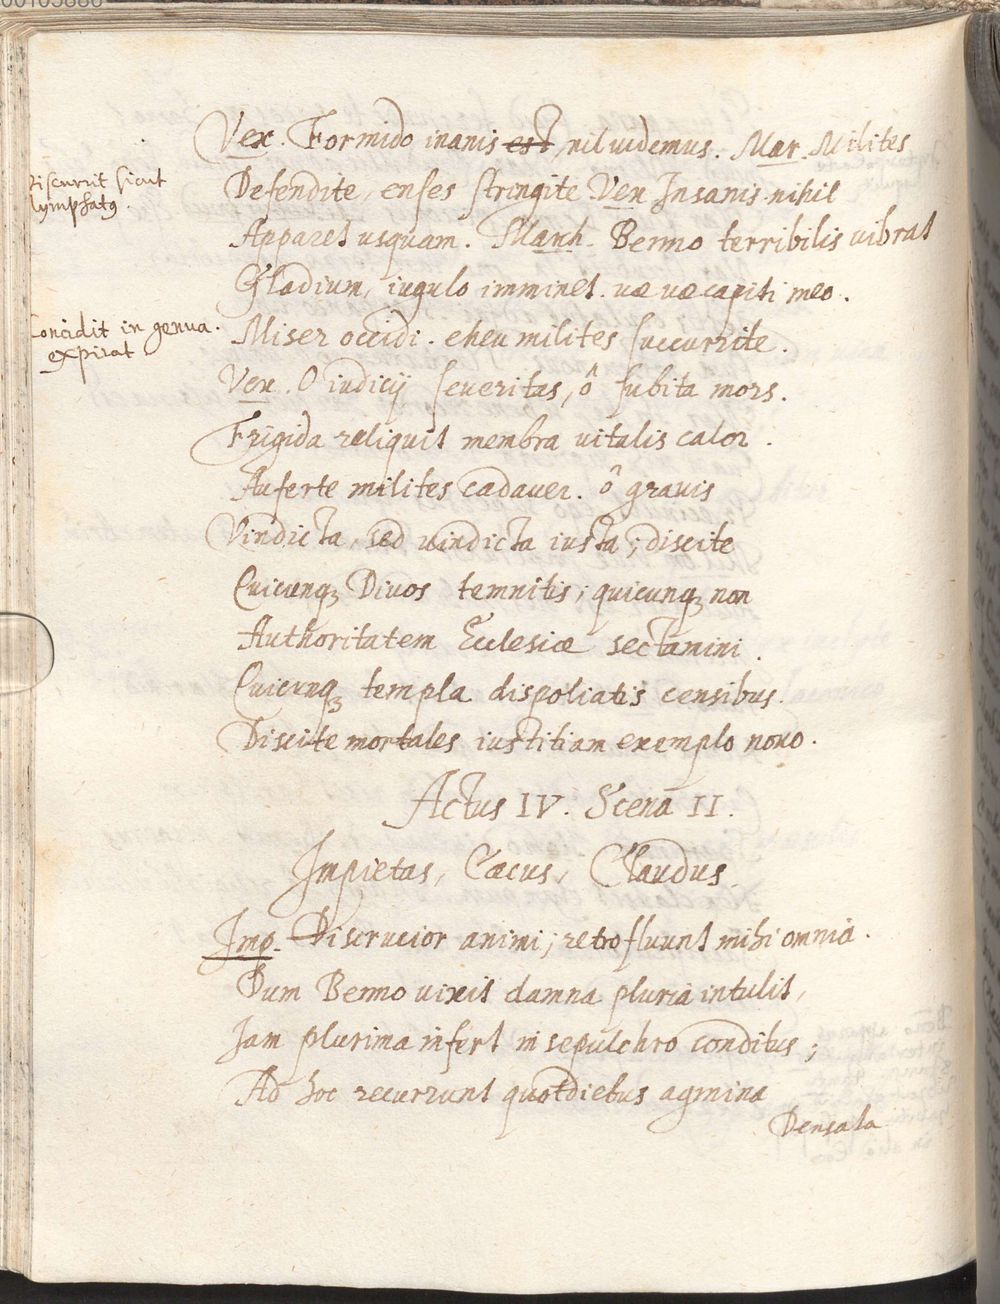 Vex. Formido inanis est, nil uidemus. Mar. Milites
Discurrit sicut
lymphatꝰ.
Defendite, enses stringite Vex Insanis. nihil
Apparet usquam. March. Benno terribilis uibrat
Gladium, iugulo imminet. uæ uæ capiti meo.
Concidit in genua.
expirat
Miser occidi. eheu milites succurrite.
Vex. O iudicij seueritas, ô subita mors.
Frigida reliquit membra uitalis calor.
Auferte milites cadauer. ô grauis
Vindicta, sed uindicta iusta; discite
Quicunqꝫ Diuos temnitis; quicunqꝫ non
Authoritatem Ecclesiæ sectamini.
Quicunqꝫ templa dispoliatis censibus.
Discite mortales iustitiam exemplo nouo.
Actus IV. Scena II.
Impietas, Cæcus, Claudus
Imp. Discrucior animi; retro fluunt mihi omnia.
Dum Benno uixit damna plura intulit,
Jam plurima infert in sepulchro conditus;
Ad hoc recurrunt quotdiebus agmina
Densata